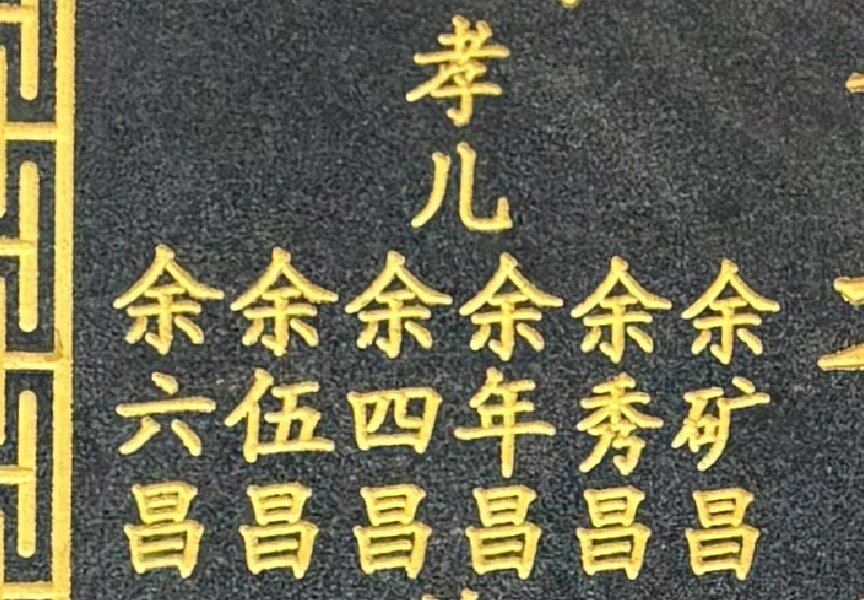 孝儿
余矿昌
余秀昌
余年昌
余四昌
余伍昌
余六昌